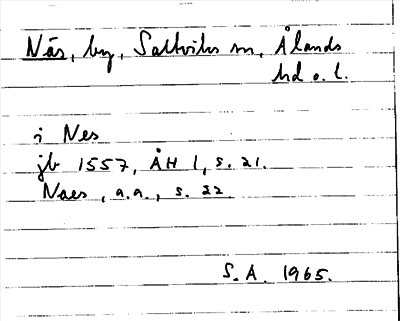 Näs, by, Saltviks sn, Ålands
hd o. l.
i Nes
jb 1557, ÅH 1, s. 21.
Naes, a.a., s. 22
S.A. 1965.